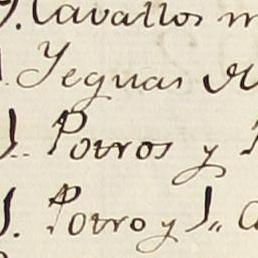 Cavallos
Yeguas
Potros y
Potro y 1,,